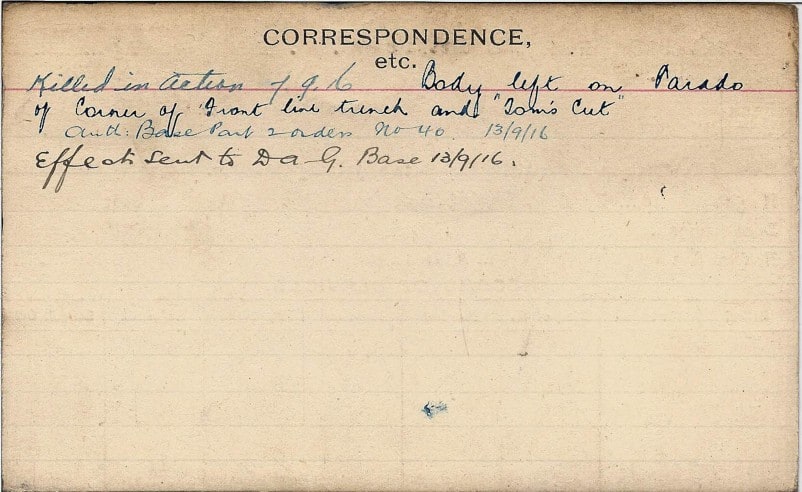 CORRESPONDENCE,
etc.
Killed in action 7.9.16 Body left on Parado
of Corner of Front line trench and "Tom's Cut"
Auth: Base Part 2 orders No 40. 13/9/16
Effects sent to D A G. Base 13/9/16.